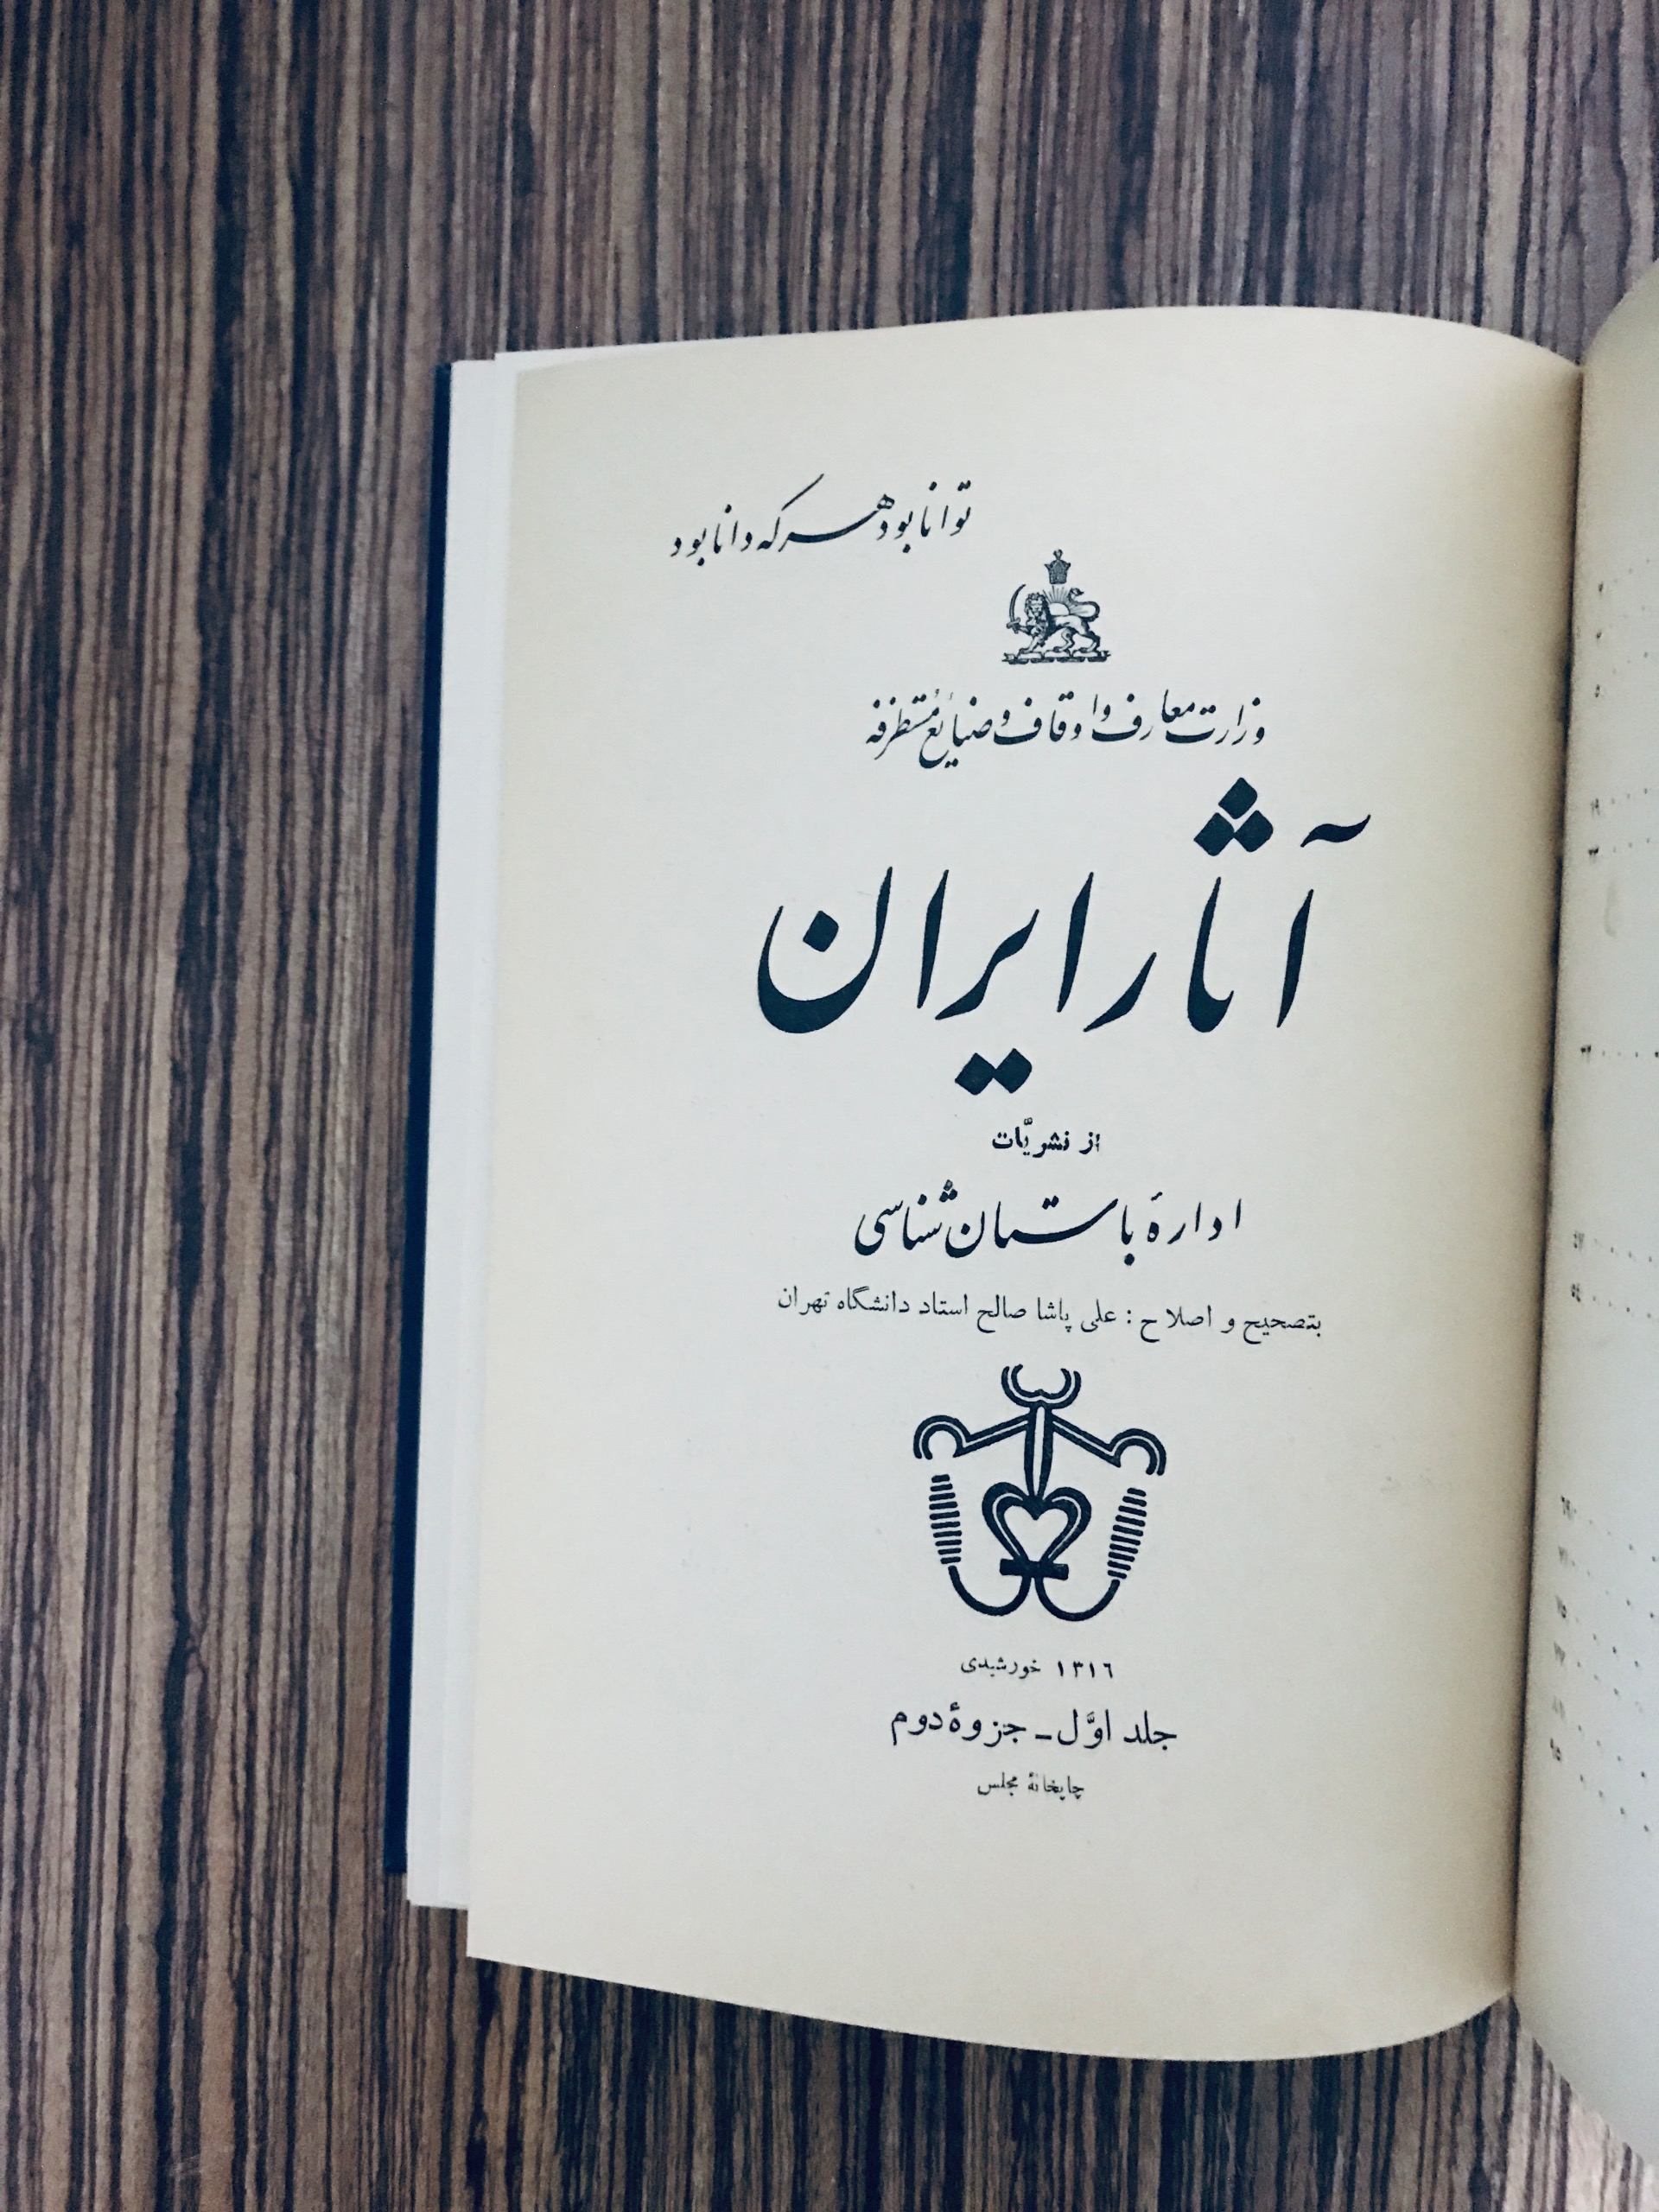 توانا بود هر که دانا بود
وزارت معارف و اوقاف و صنایع مستظرفه
آثار ایران
از نشریّات
ادارهٔ باستان شناسی
بتصحیح و اصلاح : علی پاشا صالح استاد دانشگاه تهران
۱۳۱٦ خورشیدی
جلد اوَّل ـ جزوهٔ دوم
چاپخانهٔ مجلس